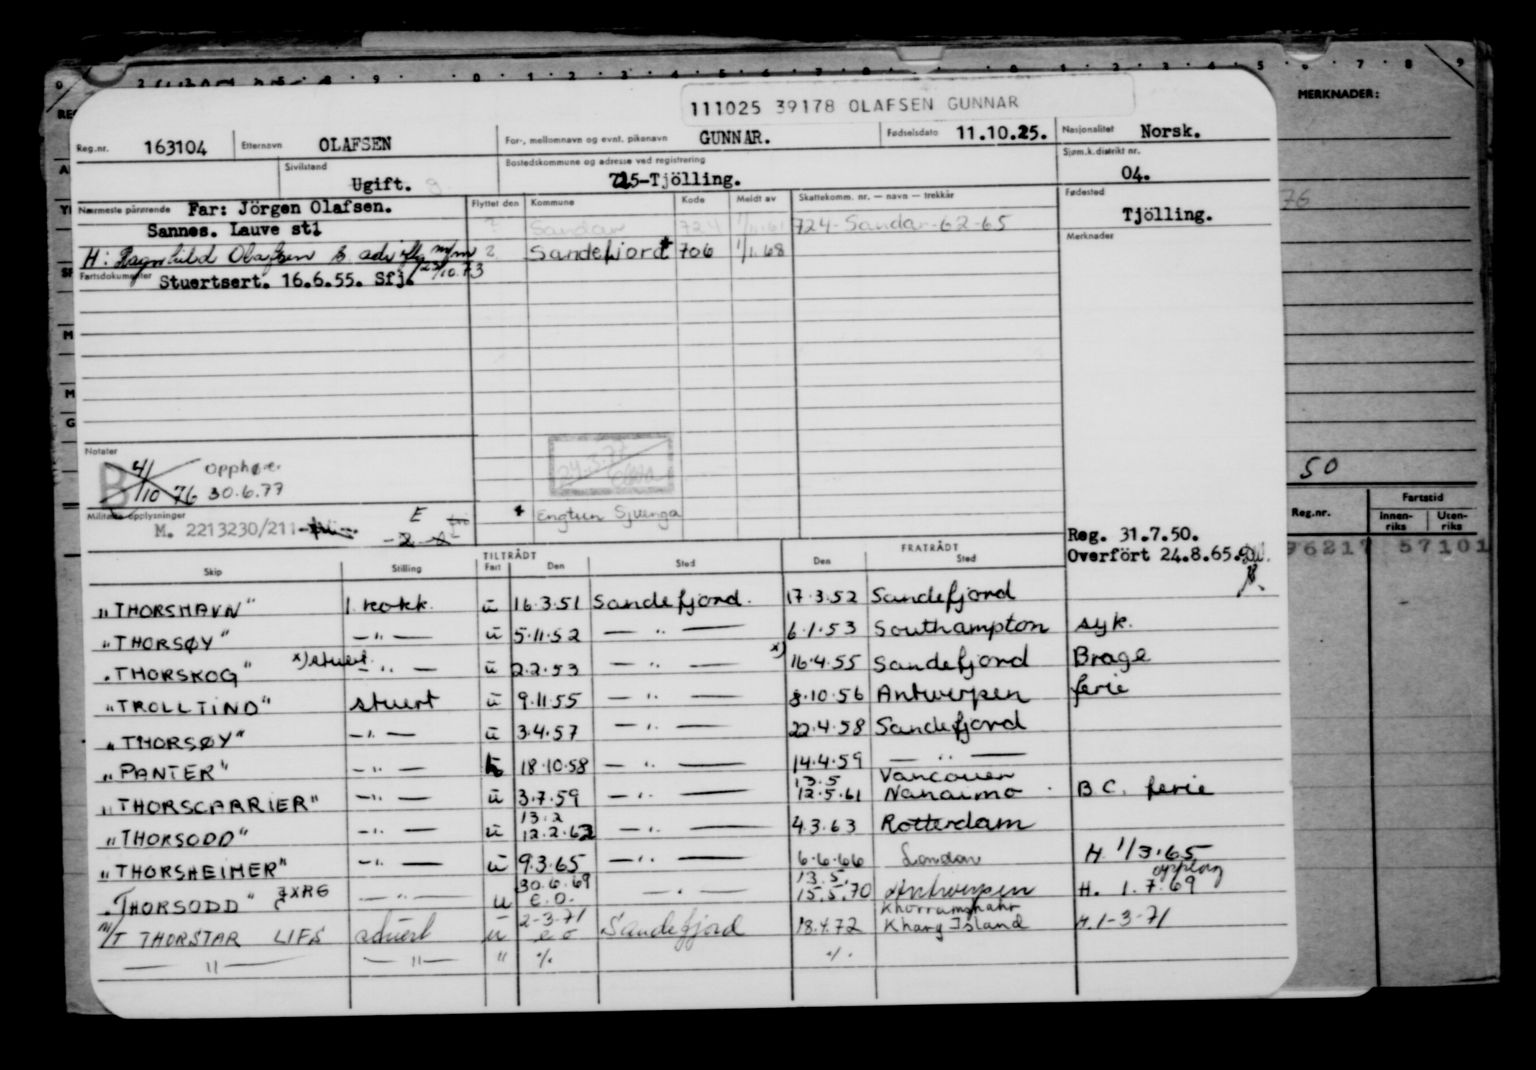 MERKNADER:
111025 39178 OLAFSEN GUNNAR
Reg.nr. 163104 Etternavn OLAFSEN For-, mellomnavn og evnt. pikenavn GUNNAR. Fødselsdato 11.10.25. Nasjonalitet Norsk.
Sivilstand Ugift. Bostedskommune og adresse ved registrering 725-Tjölling. Sjøm.k.distrikt nr. 04.
Nærmeste pårørende Far: Jörgen Olafsen. Flyttet den Kommune Kode Meldt av Skattekomm. nr. — navn — trekkår Fødested Tjölling.
Sannes. Lauve st1 ? Sandar 724 1/1.61 724-Sandar-62-65
H: Ragnhild Olafsen ? Sandefjord 706 1/1.68 Merknader
23/10.73
Fartsdokumenter Stuertsert. 16.6.55. Sfj.
Notater
B 4/10 76 Opphører
30.6.77
29.3.76
Militære opplysninger
M. 2213230/211 E
Engtun Svenga
50
Reg.nr. Fartstid
Innen-riks Uten-riks
76217 57101
Reg. 31.7.50.
Overfört 24.8.65.
TILTRÅDT FRATRÅDT
Skip Stilling Fart Den Sted Den Sted
"THORSHAVN" 1. kokk. u 16.3.51 Sandefjord. 17.3.52 Sandefjord
"THORSØY" —"— u 5.11.52 —"— 6.1.53 Southampton syk.
"THORSKOG" x) stuert —"— u 2.2.53 —"— x) 16.4.55 Sandefjord Brage
"TROLLTIND" stuert u 9.11.55 —"— 8.10.56 Antwerpen ferie
"THORSØY" —"— u 3.4.57 —"— 22.4.58 Sandefjord
"PANTER" —"— 18.10.58 —"— 14.4.59 —"—
"THORSCARRIER" —"— u 3.7.59 —"— 13.5 12.5.61 Vancouver Nanaimo B.C. ferie
"THORSODD" —"— u 13.2 12.2.62 —"— 4.3.63 Rotterdam
"THORSHEIMER" —"— u 9.3.65 —"— 6.6.66 London H 1/3.65
"THORSODD" JXRG —"— u 30.6.69 e.o. —"— 13.5 15.5.70 Antwerpen H. 1.7.69
M/T THORSTAR LIFS stuert u 2-3-71 e o Sandefjord 18.4.72 Khorramshahr Kharg Island H.1-3-71
—"— —"— " %. %.